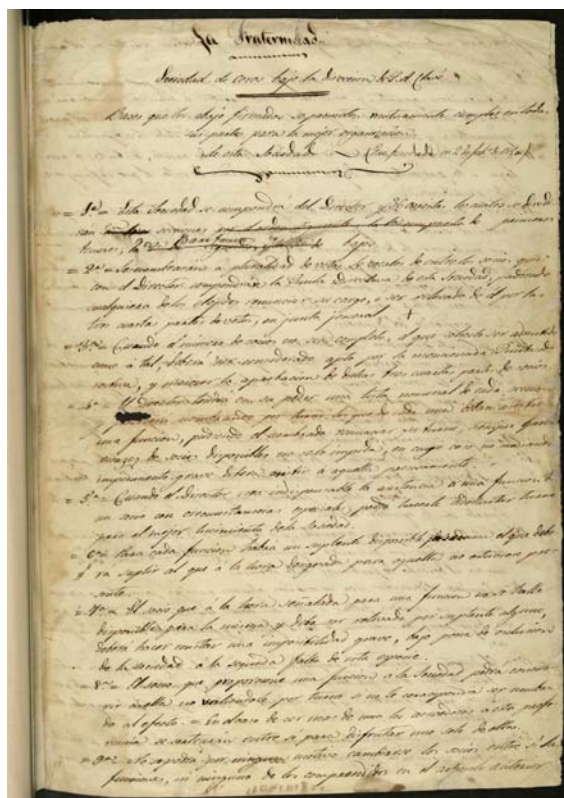 La Fraternidad
Sociedad de coros bajo la direccion de J. A. Clavé
Bases que los abajo firmados se prometen mutuamente cumplir en todas
sus partes para la mejor organizacion
de esta Sociedad (Fundada en 2 de feb. de
= 1ª = Esta Sociedad se compondrá del Director y 36 socios, los cuales se dividi
ran secciones primeros
tenores, bajos
= 2ª = Se nombraran a pluralidad de votos vocales de entre los socios, que
con el Director compondran la Junta Directiva de esta Sociedad, pudiendo
cualquiera de los elejidos renunciar su cargo, o ser relevado de él por las
tres cuartas partes de votos, en junta general
= 3ª = Cuando el número de socios no sea completo, el que solicite ser admitido
como á tal, deberá ser considerado apto por la mencionada Junta di-
rectiva, y merecer la aprobacion de dichas tres cuartas partes de socios
= 4ª = El Director tendrá en su poder una lista nominal de cada
nombrando por turno los que de una deben asistir á
una funcion, pudiendo el nombrado renunciar su turno, siempre que
socios disponibles no lo impida, en cuyo caso no mediando
impedimento grave deberá asistir á aquella personalmente.
= 5ª = Cuando el Director crea indispensable la asistencia á una funcion de
un socio con circunstancias especiales podrá hacerle adelantar turno
para el mejor lucimiento de la Sociedad.
= 6ª = Para cada funcion habrá un suplente disponible el que debe
rá suplir al que á la hora designada para aquella no estuviere pre-
sente.
= 7ª = El socio que á la hora señalada para una funcion no se halle
disponible para la misma y deba ser relevado por suplente alguno,
deberá hacer constar una imposibilidad grave, bajo pena de exclusion
de la sociedad á la segunda falta de esta especie.
= 8ª = El socio que proporcione una funcion á la Sociedad podrá concur-
rir á ella no valiendole por turno si no le correspondia ser nombra
do al efecto. = En el caso de ser mas de uno los acreedores á esta prefe
rencia se sortearán entre sí para disfrutar uno solo de ella.
= 9ª = No se podrá por ningun motivo cambiarse los socios entre sí las
funciones, ni ninguno de los comprendidos en el articulo anterior